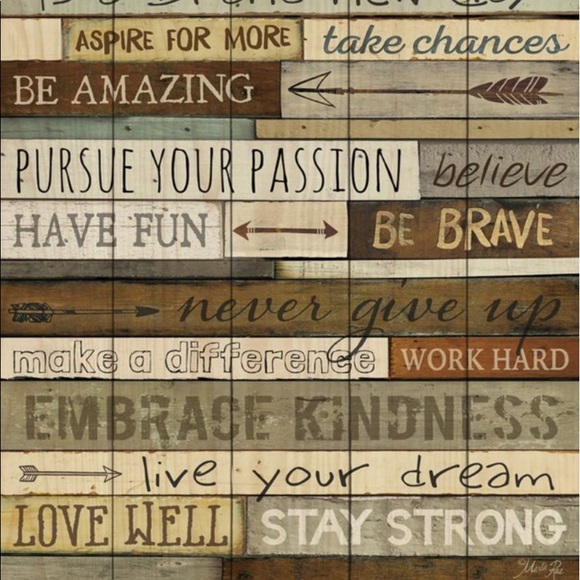 ASPIRE FOR MORE take chances
BE AMAZING
PURSUE YOUR PASSION believe
HAVE FUN BE BRAVE
never give up
make a difference WORK HARD
EMBRACE KINDNESS
live your dream
LOVE WELL STAY STRONG